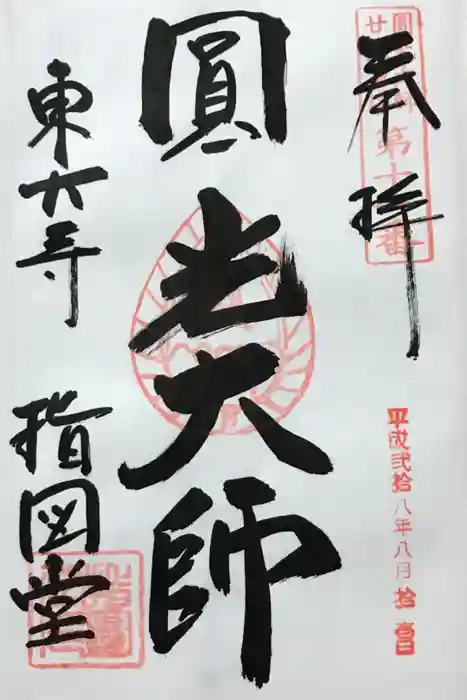 奉拝
圓
廿
第十
番
平成弐拾八年八月拾壱日
圓光大師
東大寺
指図堂